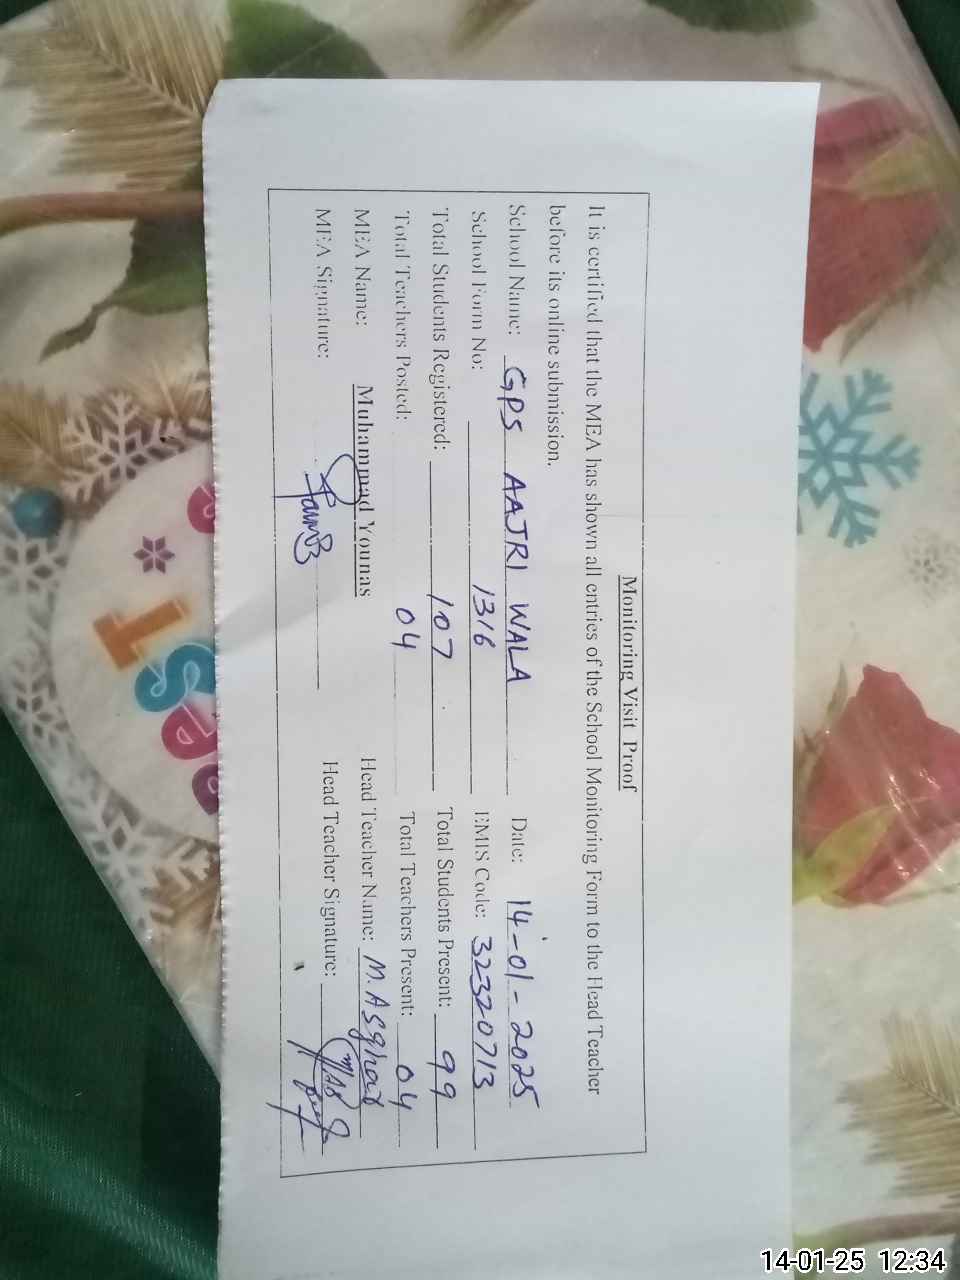 Monitoring Visit Proof
It is certified that the MEA has shown all entries of the School Monitoring Form to the Head Teacher
before its online submission.
School Name: GPS AAJRI WALA Date: 14-01-2025
School Form No: 1316 EMIS Code: 32320713
Total Students Registered: 107 Total Students Present: 99
Total Teachers Posted: 04 Total Teachers Present: 04
MEA Name: Muhammad Younas Head Teacher Name: M. Asghar
MEA Signature: Head Teacher Signature:
14-01-25 12:34